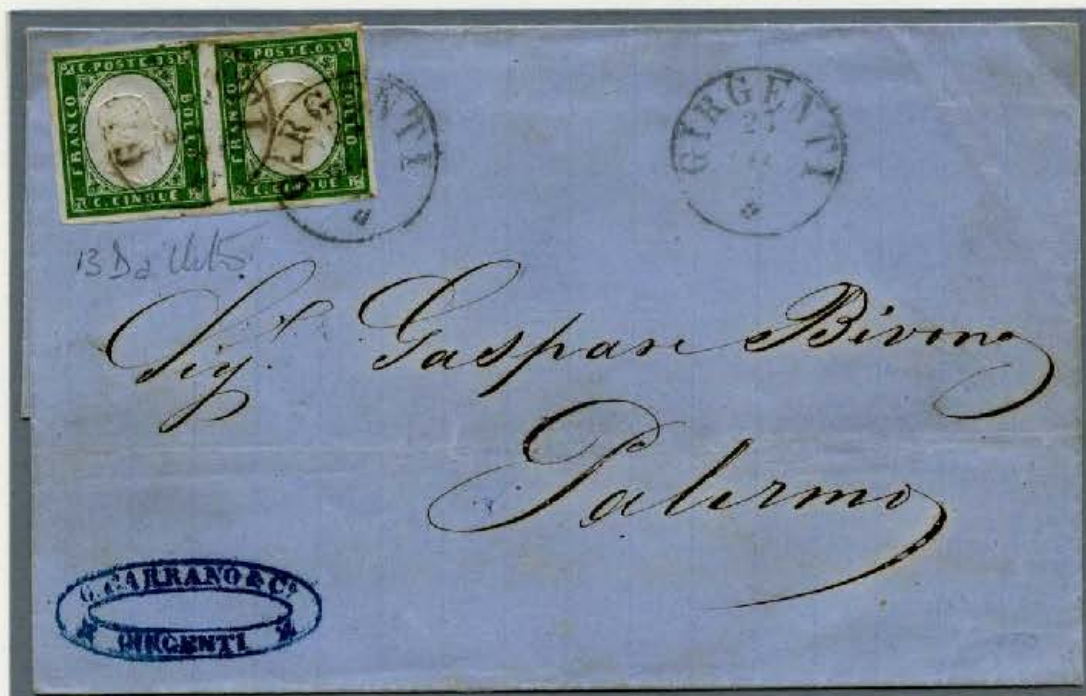 C. POSTE. 05
FRANCO
BOLLO
C. CINQUE
C. POSTE. 05
FRANCO
BOLLO
C. CINQUE
GIRGENTI
GIRGENTI
13 Da
Sigr. Gaspare Bivona
Palermo
G. CARRANO & Co.
GIRGENTI